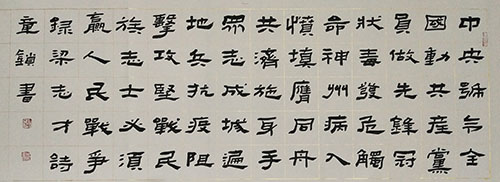 中央號令全
國動共產黨
員做先鋒冠
狀毒發危觸
命神州病人
憤填膺同舟
共濟施身手
眾志成城遍
地兵抗疫阻
擊攻堅戰民
族志士必須
贏人民戰爭
錄梁志才詩
童鎖書